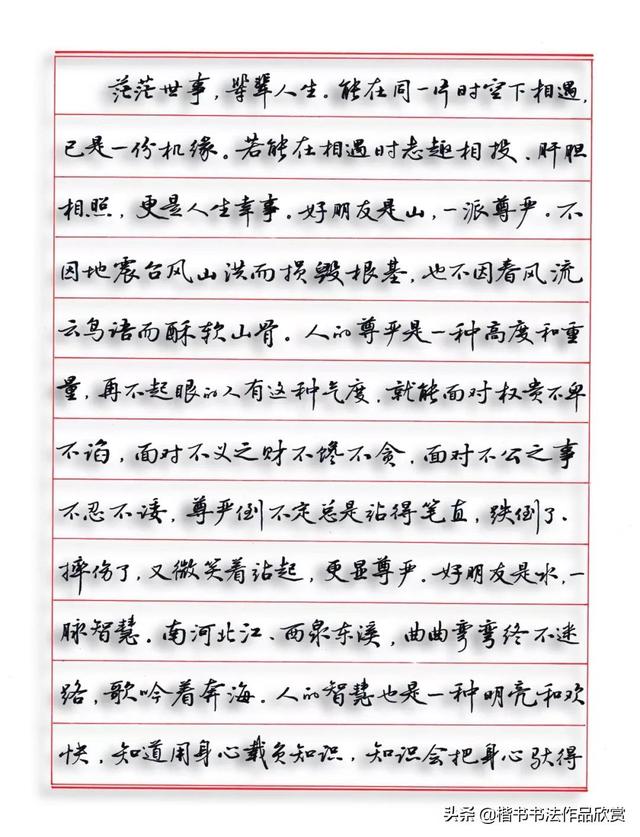 茫茫世事，攀攀人生。能在同一片时空下相遇，
已是一份机缘。若能在相遇时志趣相投、肝胆
相照，更是人生幸事。好朋友是山，一派尊严。不
因地震台风山洪而损毁根基，也不因春风流
云鸟语而酥软山骨。人的尊严是一种高度和重
量，再不起眼的人有这种气度，就能面对权贵不卑
不谄，面对不义之财不馋不贪，面对不公之事
不忍不诿，尊严倒不定总是站得笔直，跌倒了、
摔伤了，又微笑着站起，更显尊严。好朋友是水，一
脉智慧。南河北江、西泉东溪，曲曲弯弯终不迷
路，歌吟着奔海。人的智慧也是一种明亮和欢
快，知道用身心载负知识，知识会把身心驮得
头条 @楷书书法作品欣赏